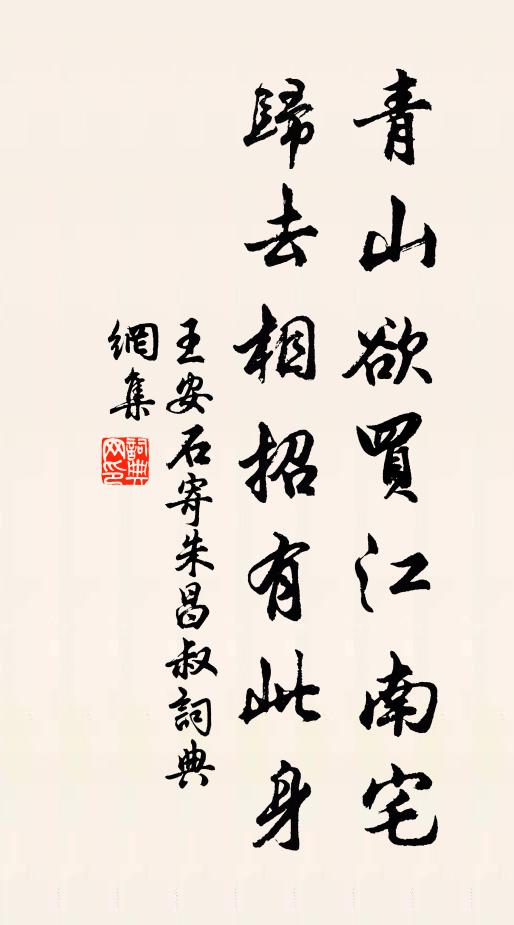 青山欲買江南宅
歸去相招有此身
王安石寄朱昌叔詞典
網集
詞典網印